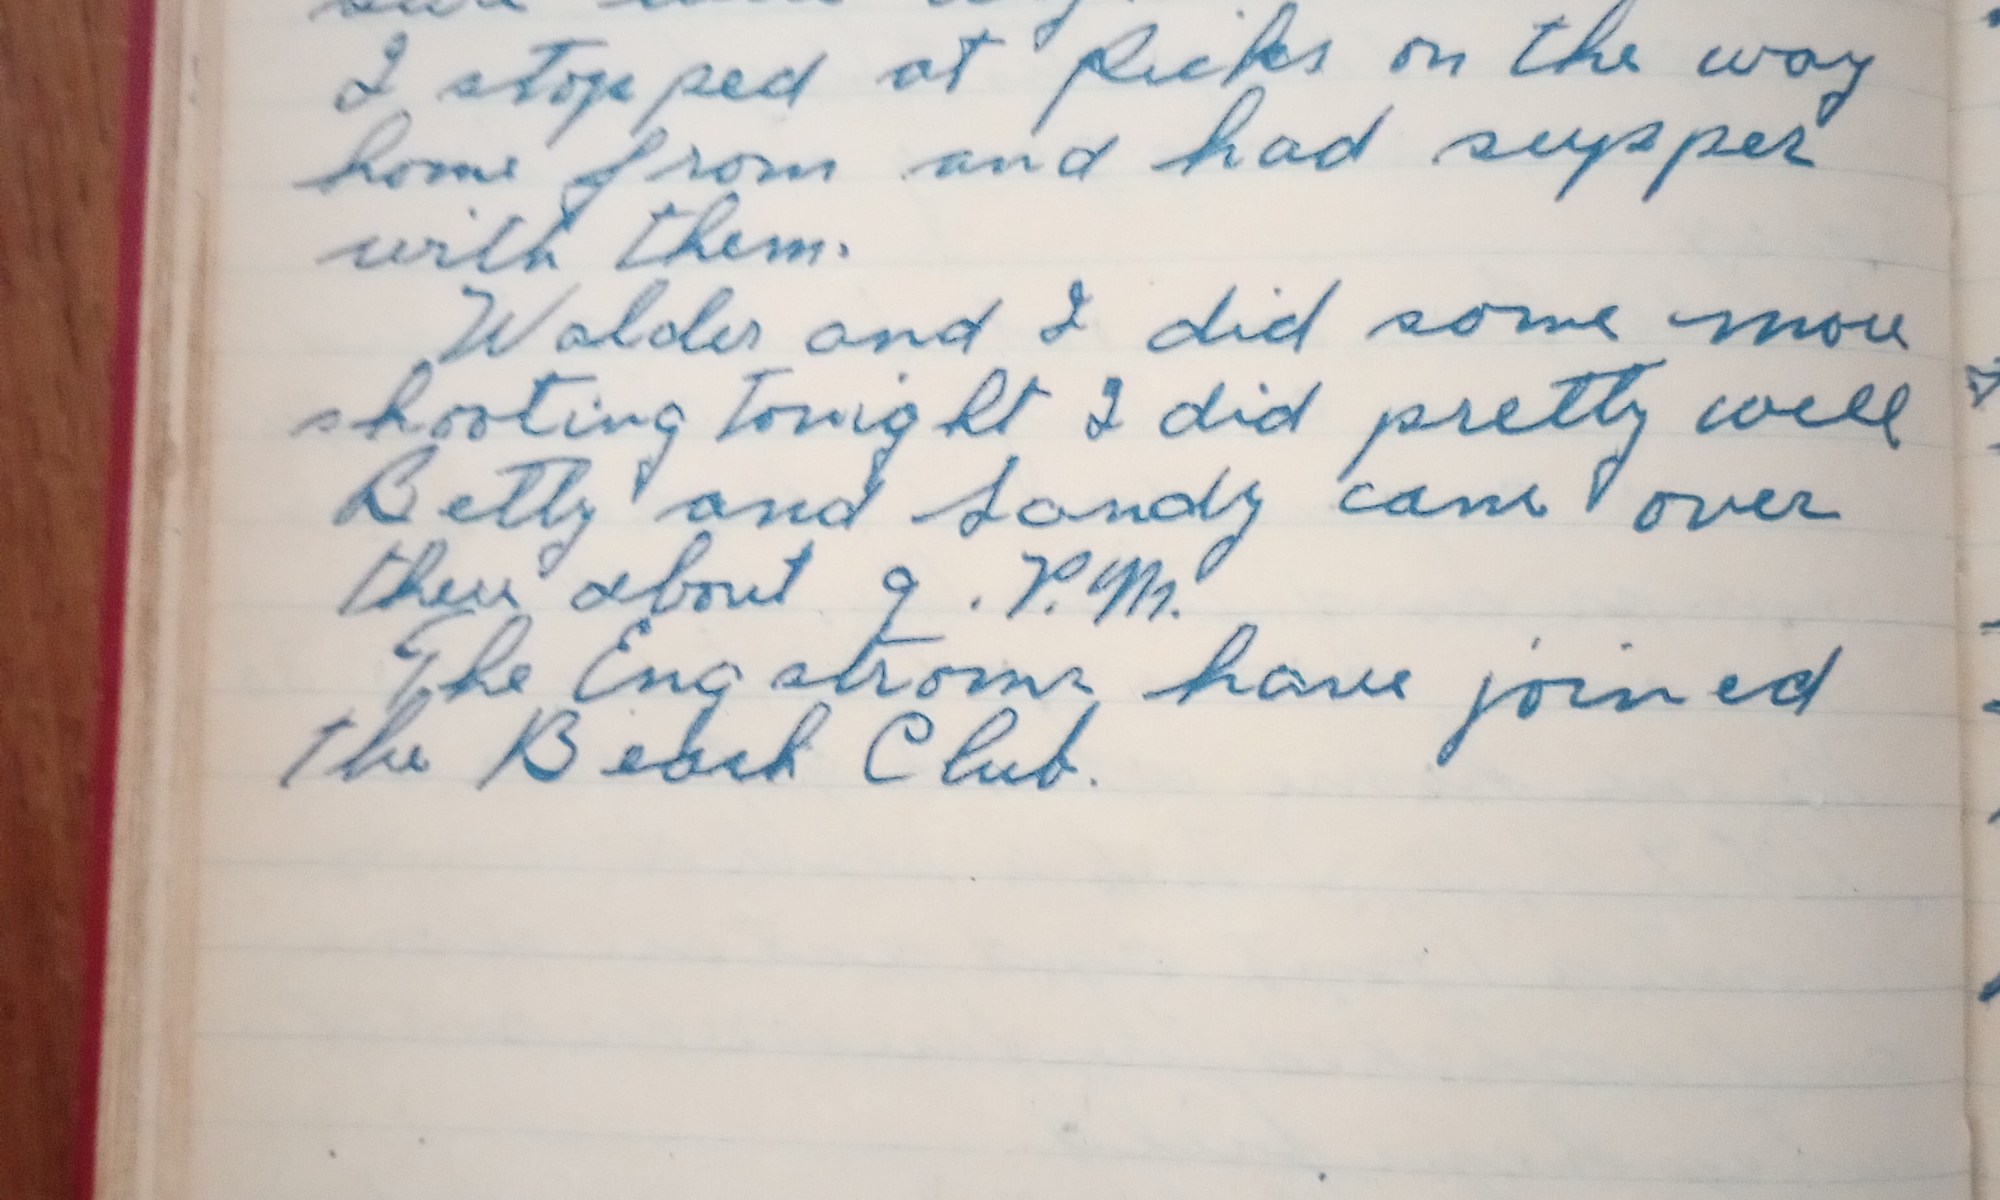 I stopped at Ricks on the way
home from and had supper
with them.
Walder and I did some more
shooting tonight I did pretty well
Betty and Sandy came over
there about 9. P.M.
The Engstroms have joined
the Beach Club.